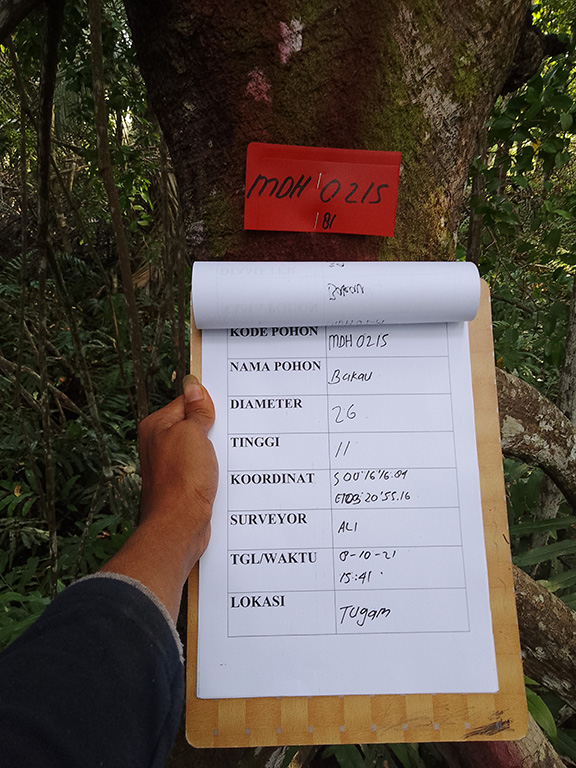 MDH 0215
81
KODE POHON MDH 0215
NAMA POHON Bakau
DIAMETER 26
TINGGI 11
KOORDINAT
SURVEYOR ALI
TGL/WAKTU 8-10-21
15:41
LOKASI Tugam